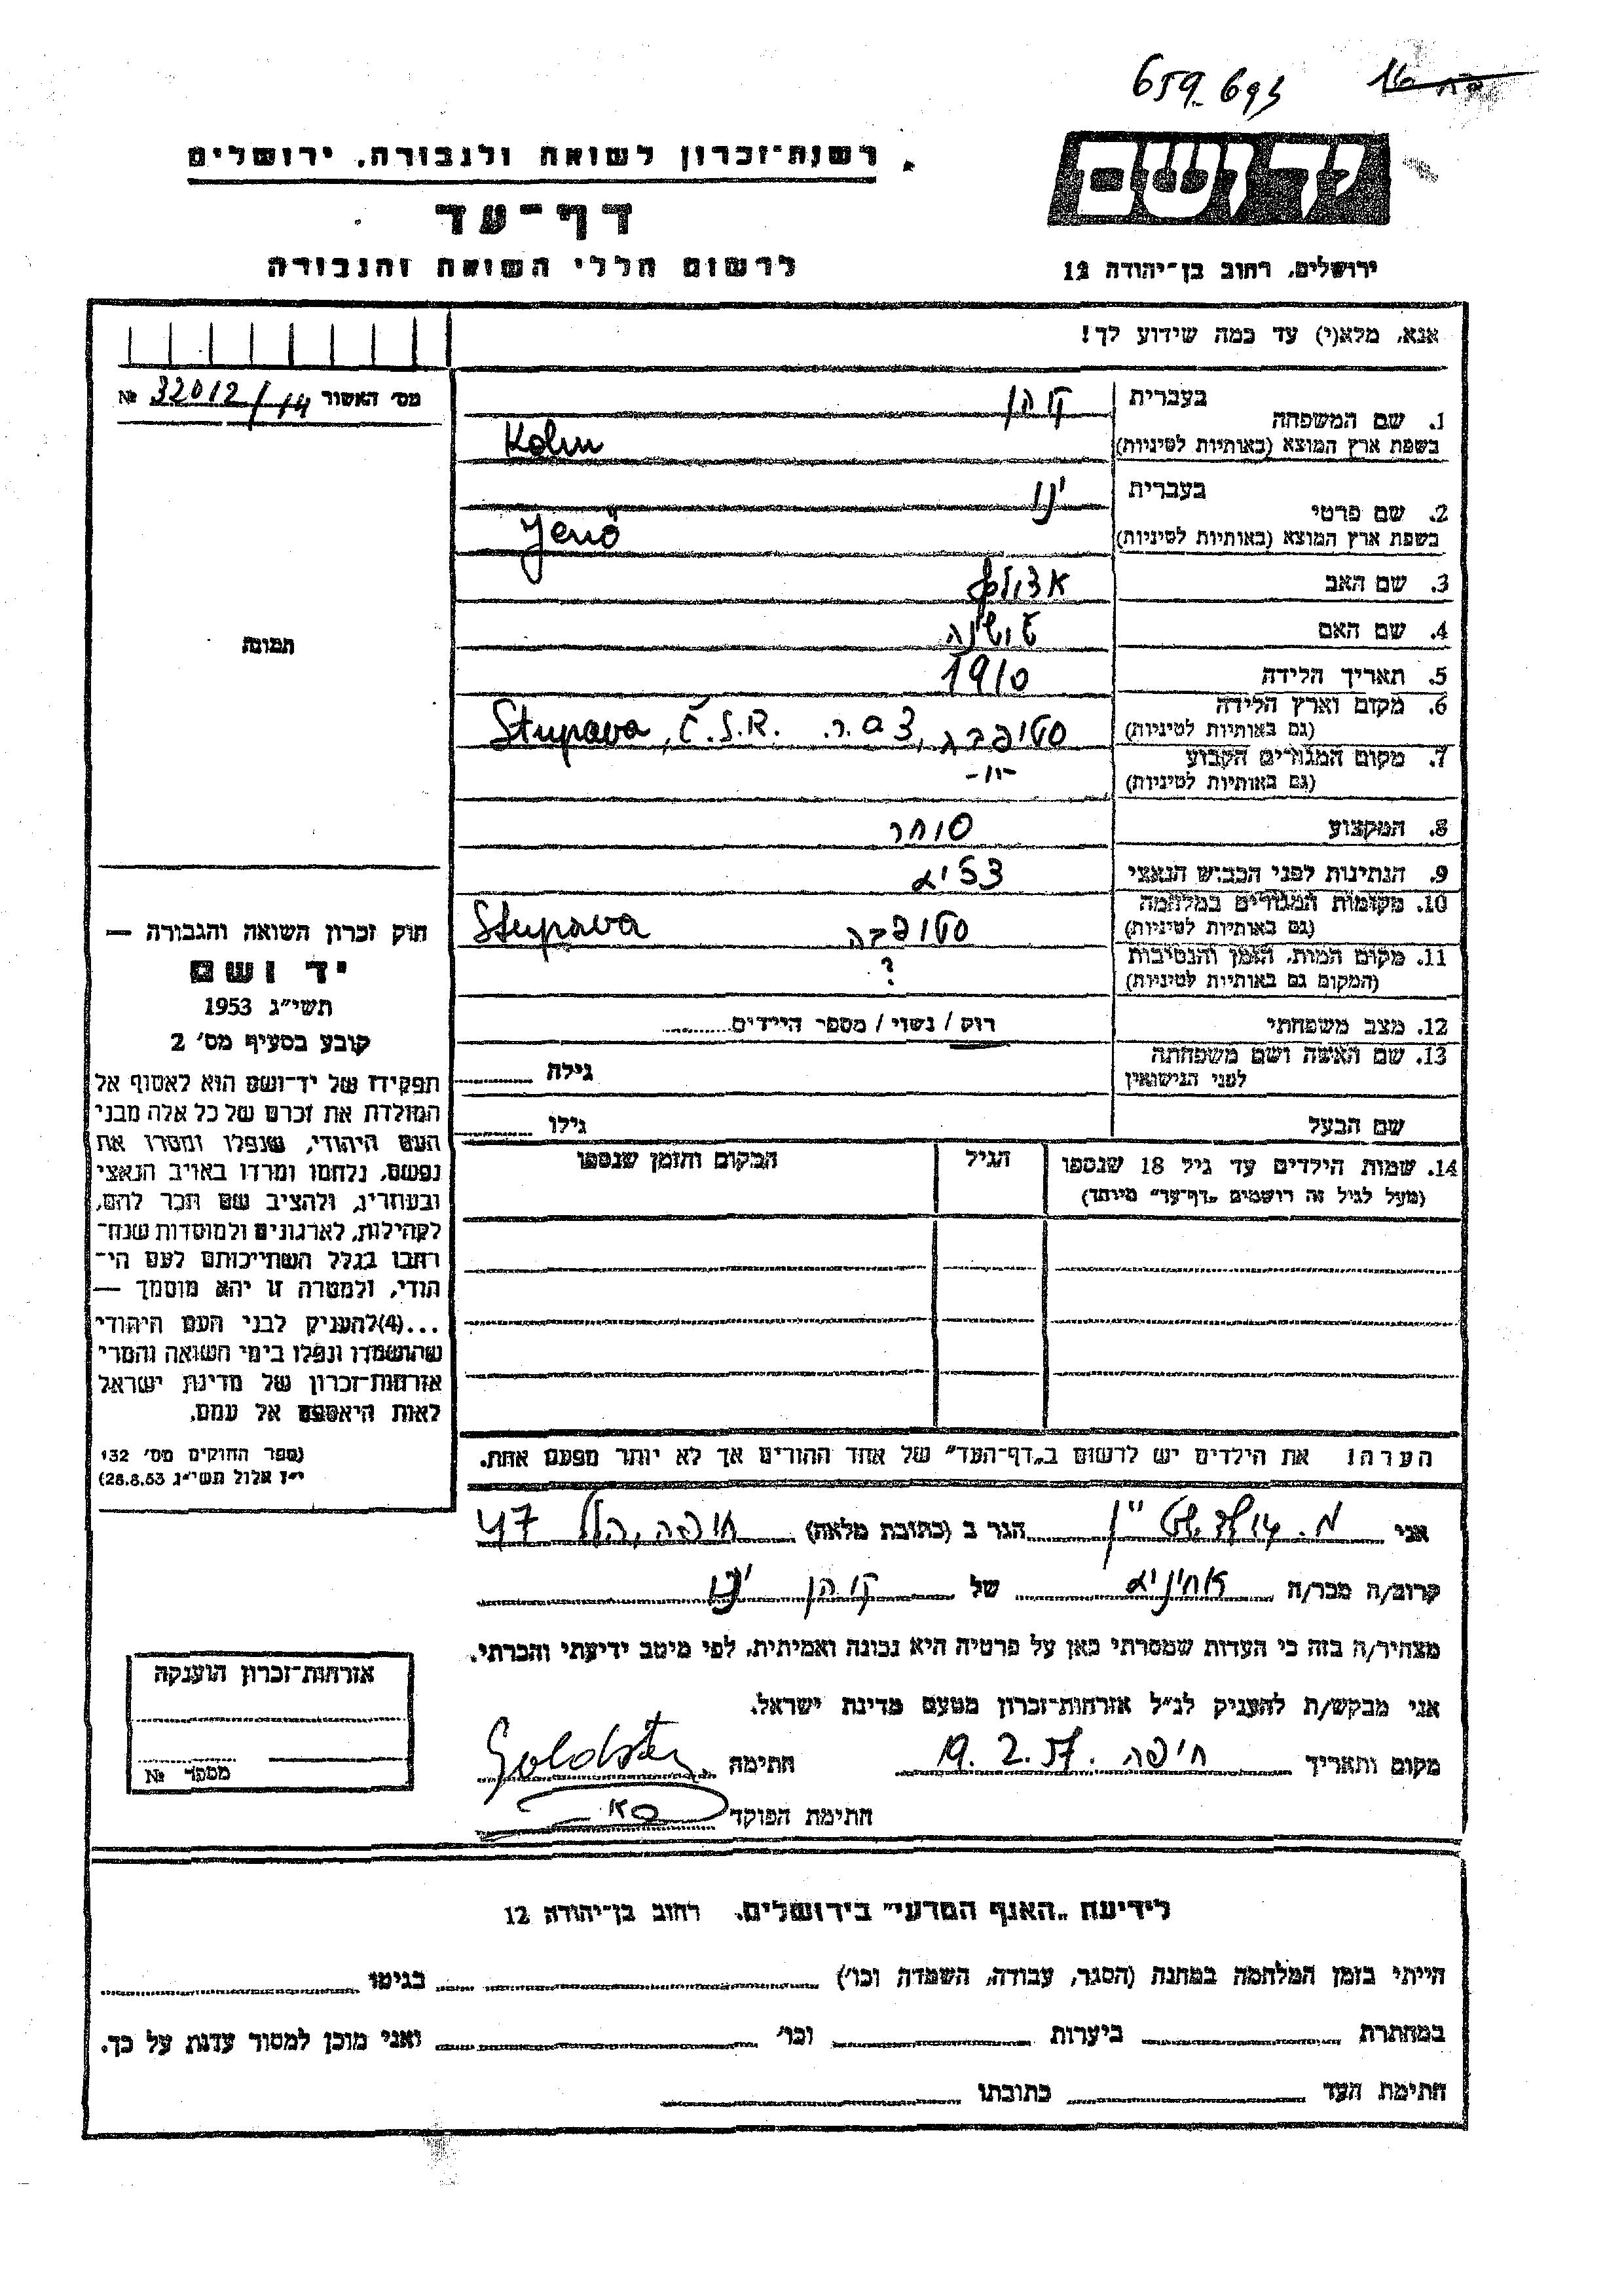 659-693
רשות־זכרון לשואה ולגבורה, ירושלים
יד ושם
דף־עד
לרשום חללי השואה והגבורה
ירושלים, רחוב בן־יהודה 12
אנא, מלא(י) עד כמה שידוע לך!
מס׳ האשור № 32012/14
1. שם המשפחה
בעברית קוהן
בשפת ארץ המוצא (באותיות לטיניות) Kohn
2. שם פרטי
בעברית ינו
בשפת ארץ המוצא (באותיות לטיניות) Jenő
3. שם האב אדולף
4. שם האם
תמונה
5. תאריך הלידה 1910
6. מקום וארץ הלידה (גם באותיות לטיניות) סטופבה, צ.ס.ר. Stupava, Č.S.R.
7. מקום המגורים הקבוע (גם באותיות לטיניות) -"-
8. המקצוע סוחר
9. הנתינות לפני הכבוש הנאצי צ׳כית
10. מקומות המגורים במלחמה (גם באותיות לטיניות) סטופבה Stupava
11. מקום המות, הזמן והנסיבות (המקום גם באותיות לטיניות) ?
12. מצב משפחתי רוק / נשוי / מספר הילדים
13. שם האשה ושם משפחתה לפני הנישואין גילה
שם הבעל גילו
14. שמות הילדים עד גיל 18 שנספו
(מעל לגיל זה רושמים „דף־עד” מיוחד)
הגיל
המקום והזמן שנספו
חוק זכרון השואה והגבורה —
יד ושם
תשי״ג 1953
קובע בסעיף מס׳ 2
תפקידו של יד־ושם הוא לאסוף אל
המולדת את זכרם של כל אלה מבני
העם היהודי, שנפלו ומסרו את
נפשם, נלחמו ומרדו באויב הנאצי
ובעוזריו, ולהציב שם וזכר להם,
לקהילות, לארגונים ולמוסדות שנח־
רבו בגלל השתייכותם לעם הי־
הודי, ולמטרה זו יהא מוסמך —
...(4)להעניק לבני העם היהודי
שהושמדו ונפלו בימי השואה והמרי
אזרחות־זכרון של מדינת ישראל
לאות היאספם אל עמם.
(ספר החוקים מס׳ 132
י״ז אלול תשי״ג 28.8.53)
הערה: את הילדים יש לרשום ב„דף־העד” של אחד ההורים אך לא יותר מפעם אחת.
אני מ. גולדשטיין הגר ב (כתובת מלאה) חיפה, 47
קרוב/ה מכר/ה אחינית של קוהן ינו
מצהיר/ה בזה כי העדות שמסרתי כאן על פרטיה היא נכונה ואמיתית, לפי מיטב ידיעתי והכרתי.
אני מבקש/ת להעניק לנ״ל אזרחות־זכרון מטעם מדינת ישראל.
מקום ותאריך חיפה 19.2.57 חתימה Goldstein
חתימת הפוקד
אזרחות־זכרון הוענקה
מספר №
לידיעת „האגף המדעי” בירושלים, רחוב בן־יהודה 12
הייתי בזמן המלחמה במחנה (הסגר, עבודה, השמדה וכו׳) בגיטו
במחתרת ביערות וכו׳ ואני מוכן למסור עדות על כך.
חתימת העד כתובתו